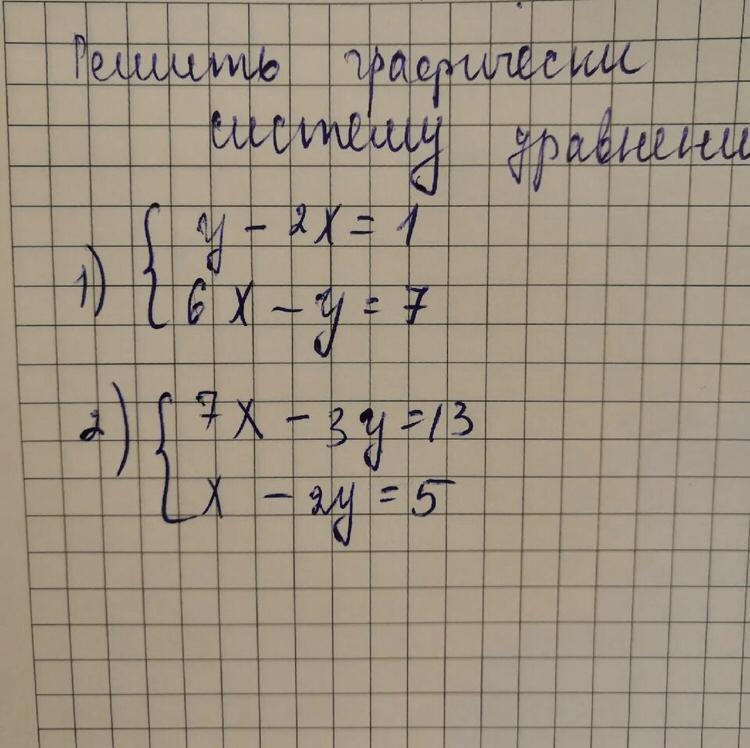 Решить графически
систему уравнени
1) { y - 2x = 1
6x - y = 7
2) { 7x - 3y = 13
x - 2y = 5